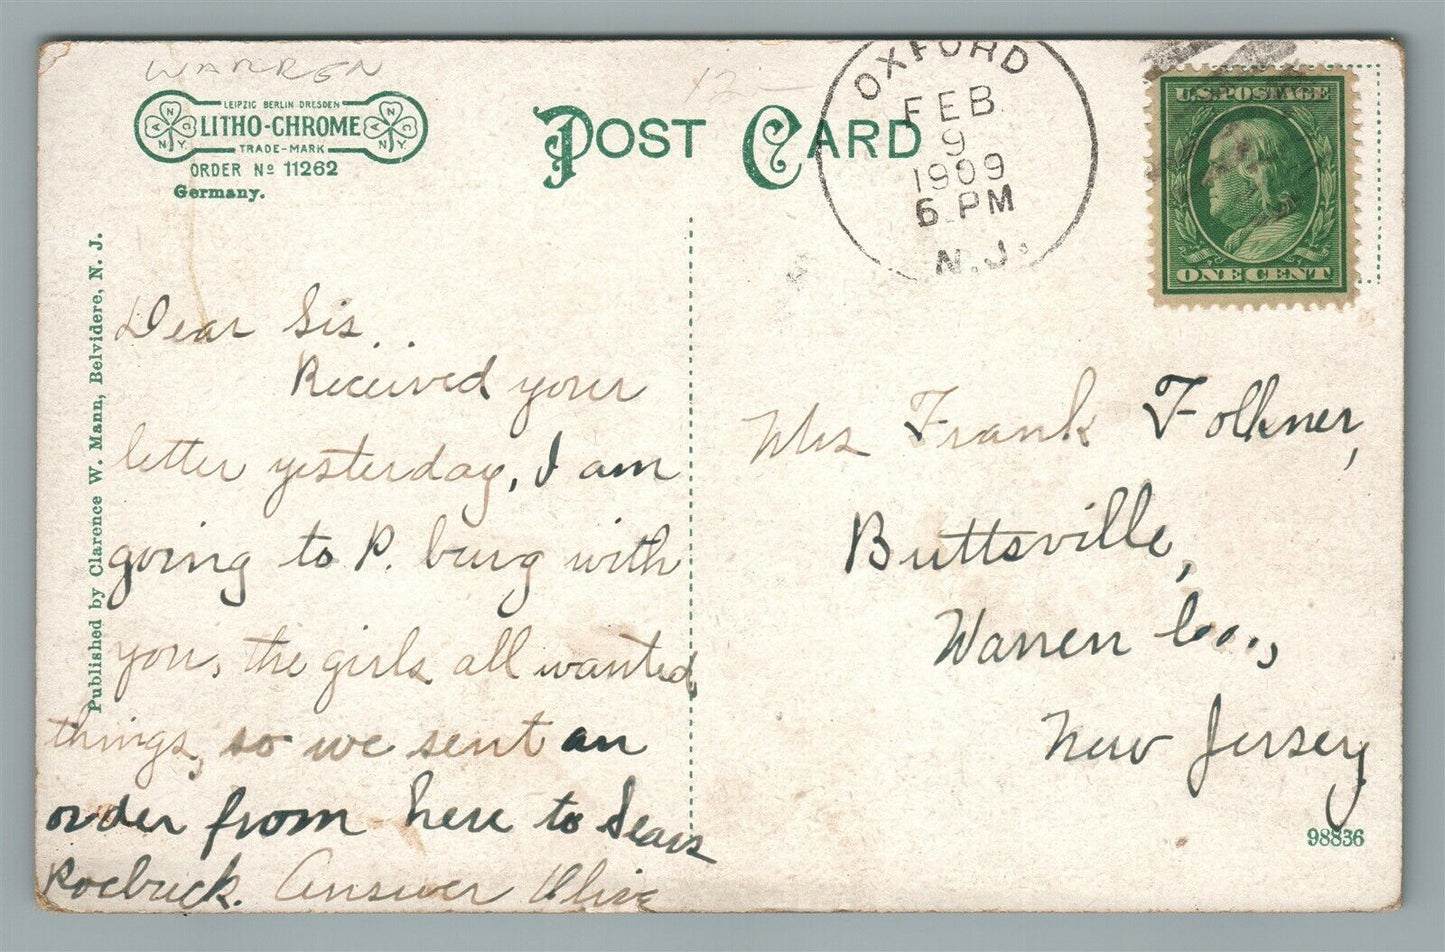 WARREN
12-
LEIPZIG BERLIN DRESDEN
LITHO-CHROME
TRADE-MARK
A N C N.Y.
A N C N.Y.
ORDER No 11262
Germany.
POST CARD
OXFORD
FEB
9
1909
6 PM
N.J.
U.S. POSTAGE
ONE CENT
Published by Clarence W. Mann, Belvidere, N. J.
Dear Sis..
Received your
letter yesterday, I am
going to P. burg with
you, the girls all wanted
things, so we sent an
order from here to Sears
Roebuck. Answer Olive
Mrs Frank Folkner,
Buttsville,
Warren Co.,
New Jersey
98836